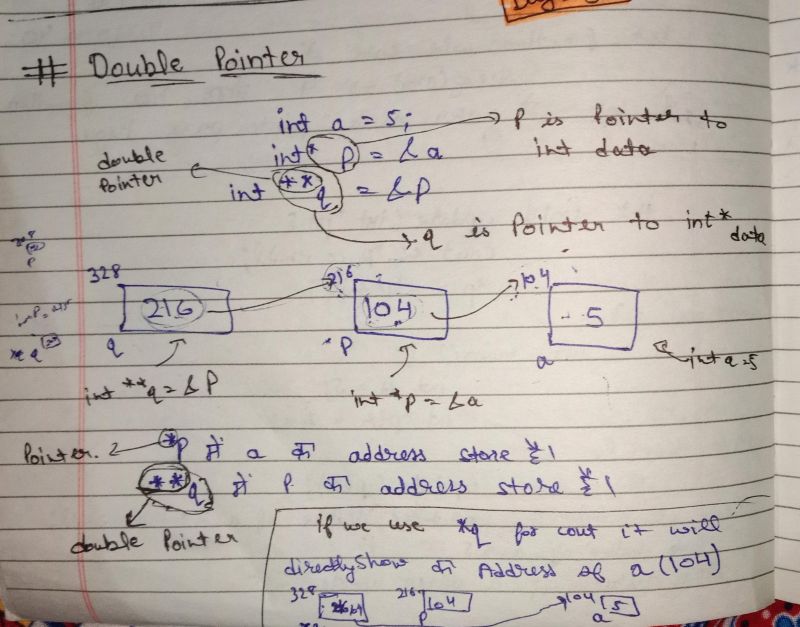 # Double Pointer
int a = 5;
int* p = &a
p is Pointer to int data
double Pointer
int **q = &p
q is Pointer to int* data
328
216
216
104
104
5
q
p
a
int **q = &p
int *p = &a
int a = 5
Pointer. *p में a का address store है।
**q में p का address store है।
double Pointer
if we use *q for cout it will
directly show का Address of a (104)
328
216
104
104
5
p
a